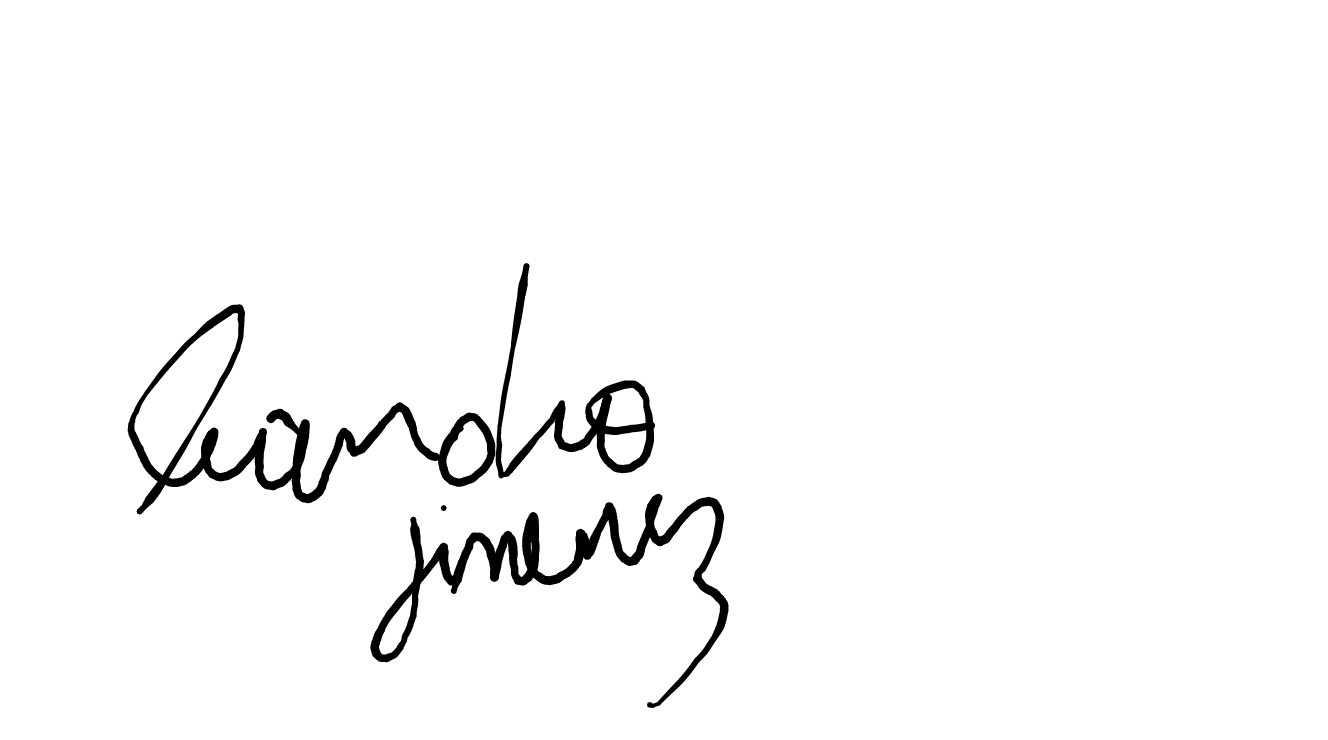 leandro
jimenez